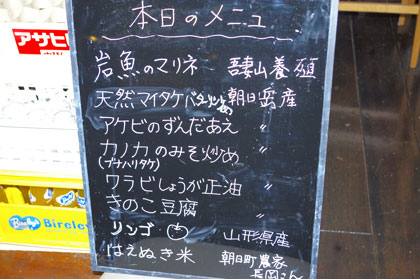 アサヒ
本日のメニュー
岩魚のマリネ 吾妻山養殖
天然マイタケバター炒め 朝日岳産
アケビのずんだあえ 〃
カノカのみそ炒め 〃
(ブナハリタケ)
ワラビしょうが正油 〃
きのこ豆腐 〃
リンゴ 山形県産
はえぬき米 朝日町農家
長岡さん
Bireley